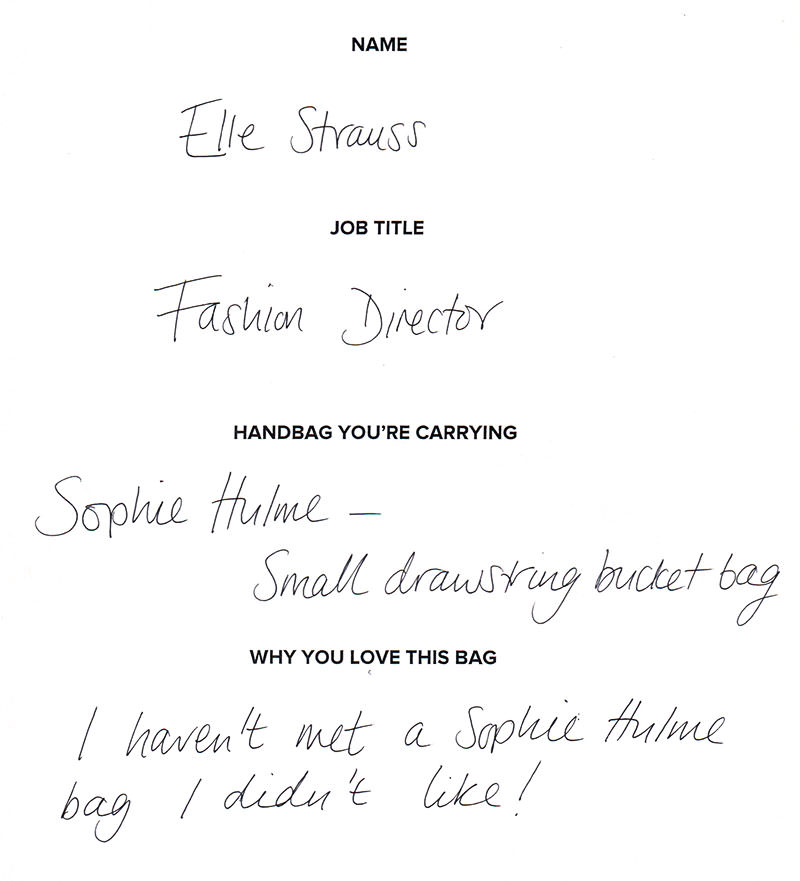 NAME
Elle Strauss
JOB TITLE
Fashion Director
HANDBAG YOU'RE CARRYING
Sophie Hulme –
Small drawstring bucket bag
WHY YOU LOVE THIS BAG
I haven't met a Sophie Hulme
bag I didn't like!